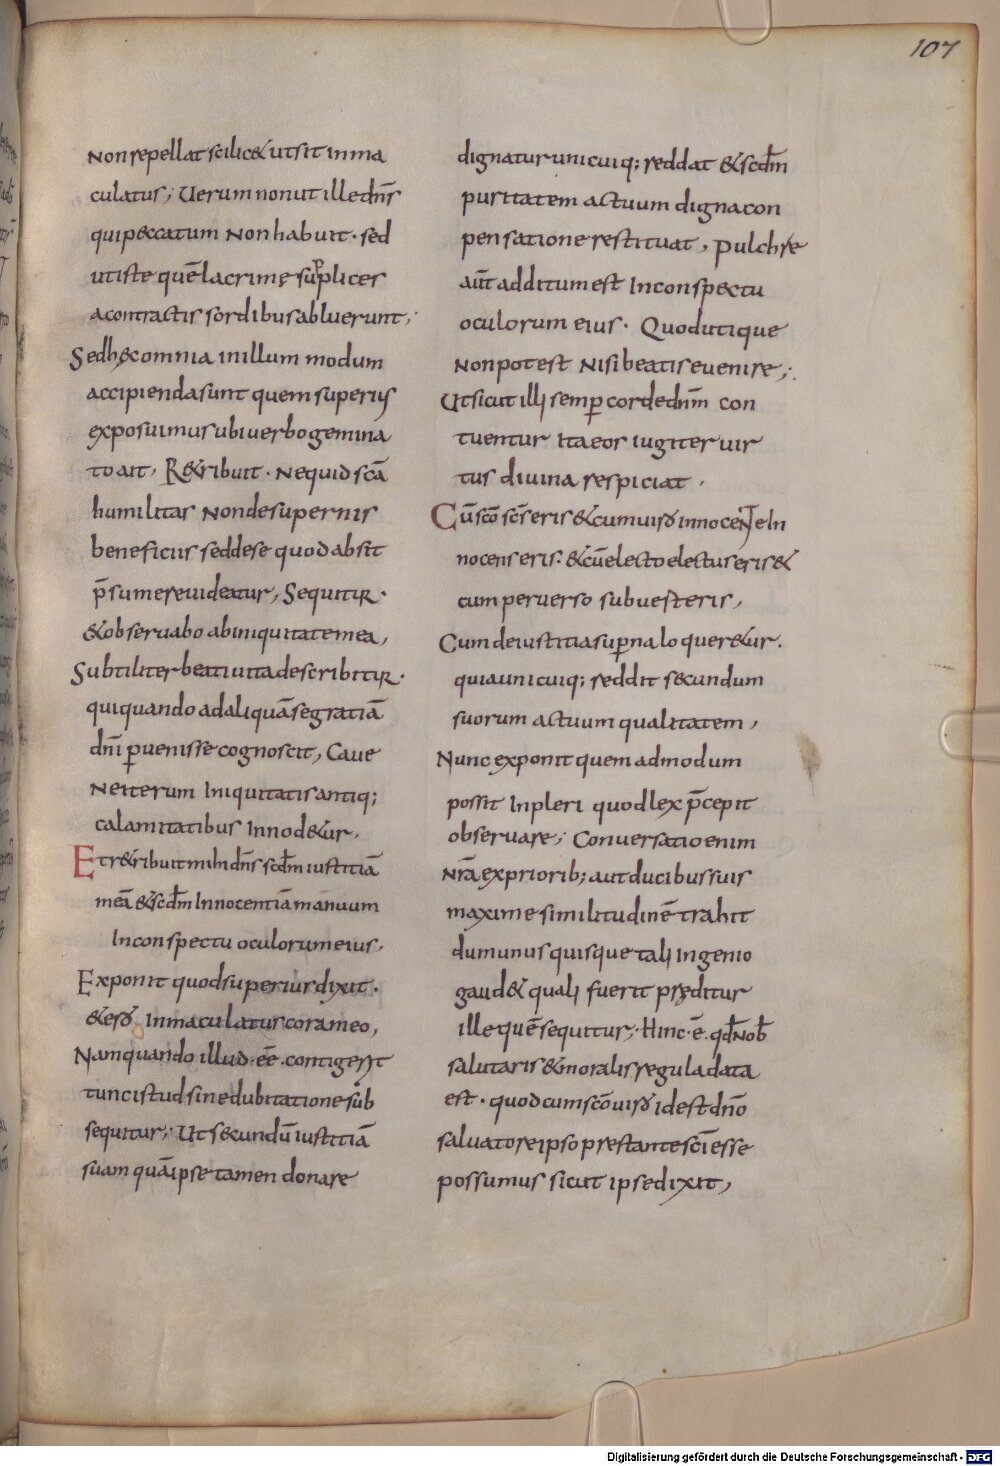 107
Non repellat scilic& ut sit inma
culatus; Uerum non ut ille dn̄s
qui peccatum Non habuit · sed
ut iste quē lacrimę supplices
a contractis sordibus abluerunt;
Sed h&c omnia in illum modum
accipienda sunt quem superius
exposuimus ubi uerbo gemina
to ait, R&ribuit · Ne quid scā
humilitas Non de supernis
beneficiis sed de se quod absit
p̄sumere uideatur, Sequitur ·
& obseruabo ab iniquitate mea,
Subtiliter beati uita describitur ·
qui quando ad aliquā se gratiā
dn̄i p̱uenisse cognoscit, Caue
Ne iterum Iniquitatis antiq;
calamitatibus Innod&ur,
Et r&ribuit mihi dn̄s scd̄m iustitiā
meā & scd̄m Innocentiā manuum
In conspectu oculorum eius,
Exponit quod superius dixit ·
& erō Inmaculatus cora meo,
Nam quando illud · eē · contigerit
tunc istud sine dubitatione sub
sequitur; Ut secundū iustitiā
suam quā ipse tamen donare
dignatur unicuiq; reddat & scd̄m
puritatem actuum digna con
pensatione restituat, Pulchre
aūt additum est In conspectu
oculorum eius · Quod utique
Non potest Nisi beatis euenire;
Ut sicut illi semp̱ corde dn̄m con
tuentur Ita eos iugiter uir
tus diuina respiciat,
Cū scō scs̄ eris & cum uirō innocente In
nocens eris · & cū electo electus eris &
cum peruerso subuerteris,
Cum de iustitia sup̱na loquer&ur ·
quia unicuiq; reddit secundum
suorum actuum qualitatem,
Nunc exponit quemadmodum
possit Inpleri quod lex p̄cepit
obseruare; Conuersatio enim
Nr̄a ex priorib; aut ducibus suis
maxime similitudinē trahit
dum unusquisque tali Ingenio
gaud& quali fuerit pręditus
ille quē sequitur; Hinc · ē · qd̄ Nob̄
salutaris & moralis regula data
est · quod cum scō uirō id est dn̄o
saluatore ipso prestante scī esse
possumus sicut ipse dixit,
Digitalisierung gefördert durch die Deutsche Forschungsgemeinschaft - DFG